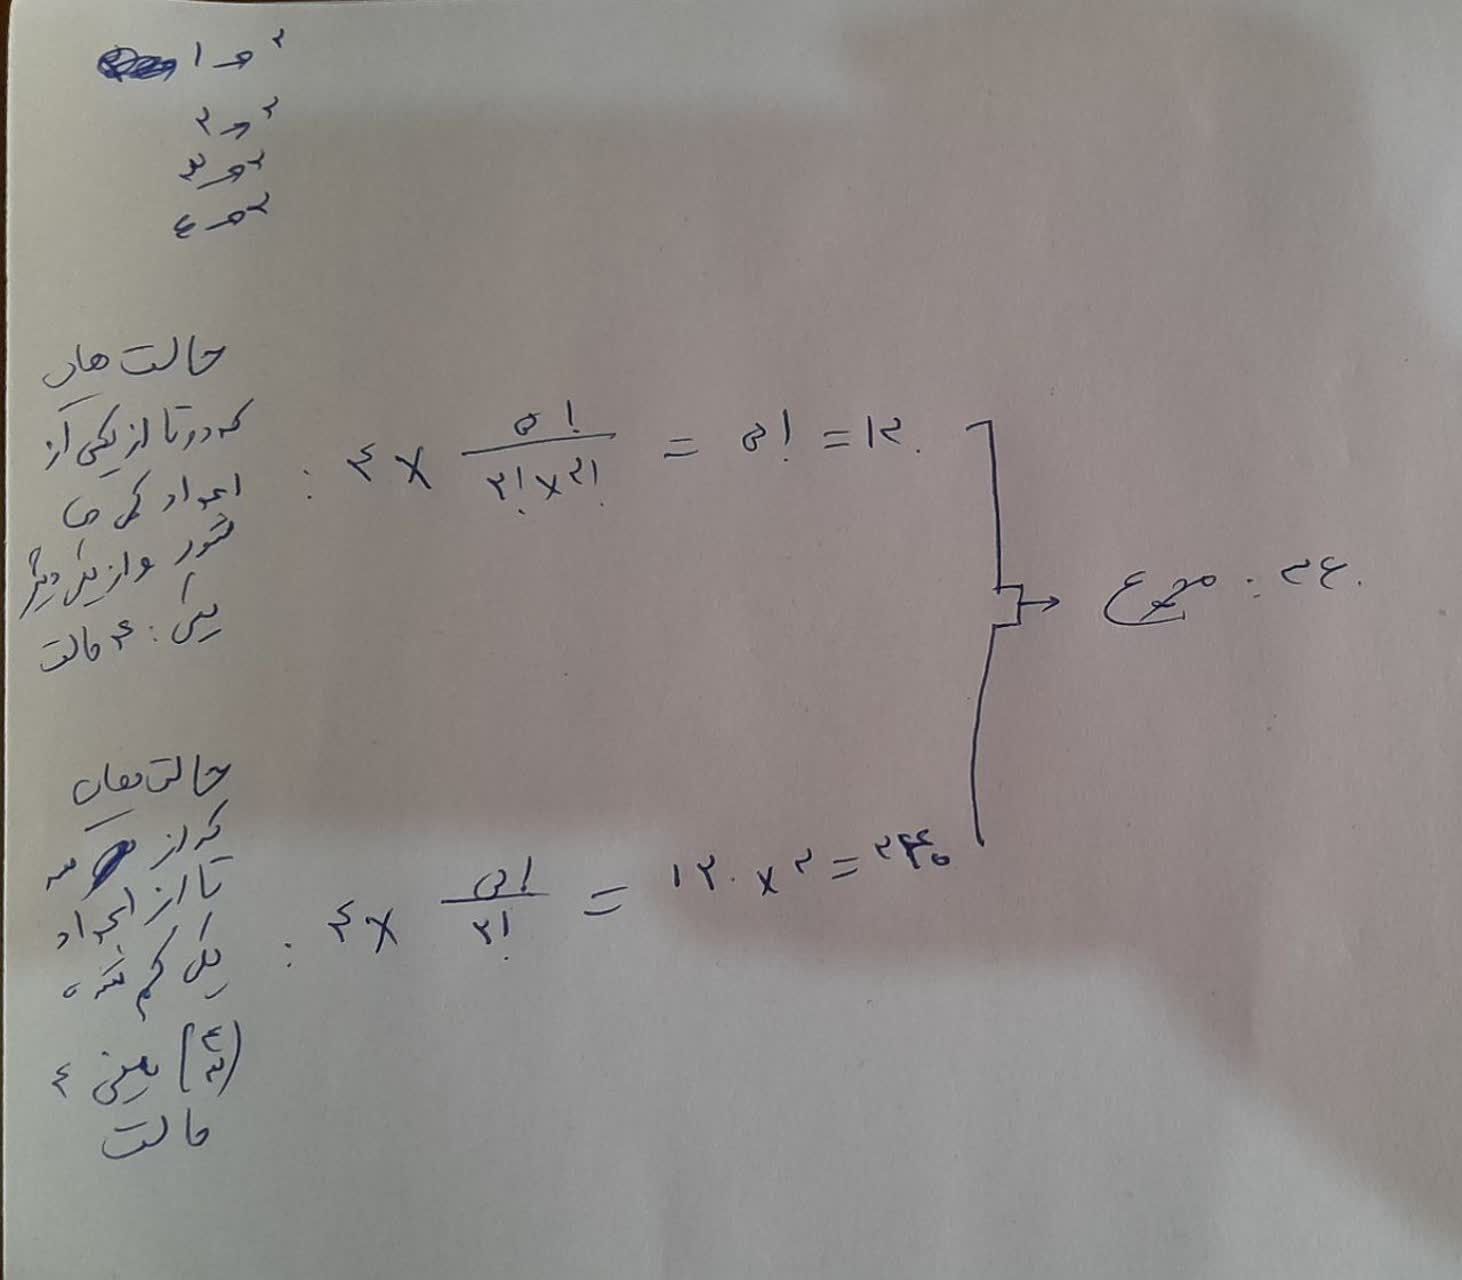 ۱ → ۲
۲ → ۲
۳ → ۲
۴ → ۲
حالت های
که دوتا از یکی از
اعداد کم می
شود و از یکی دیگر
یکی : ۴ حالت
: ۴ × ۵! / ۲! × ۲! = ۵! = ۱۲۰
حالت های
که از ۳
تا از اعداد
یکی کم شده،
(۴ ۳) یعنی ۴
حالت
: ۴ × ۵! / ۲! = ۱۲۰ × ۲ = ۲۴۰
مجموع : ۳۶۰